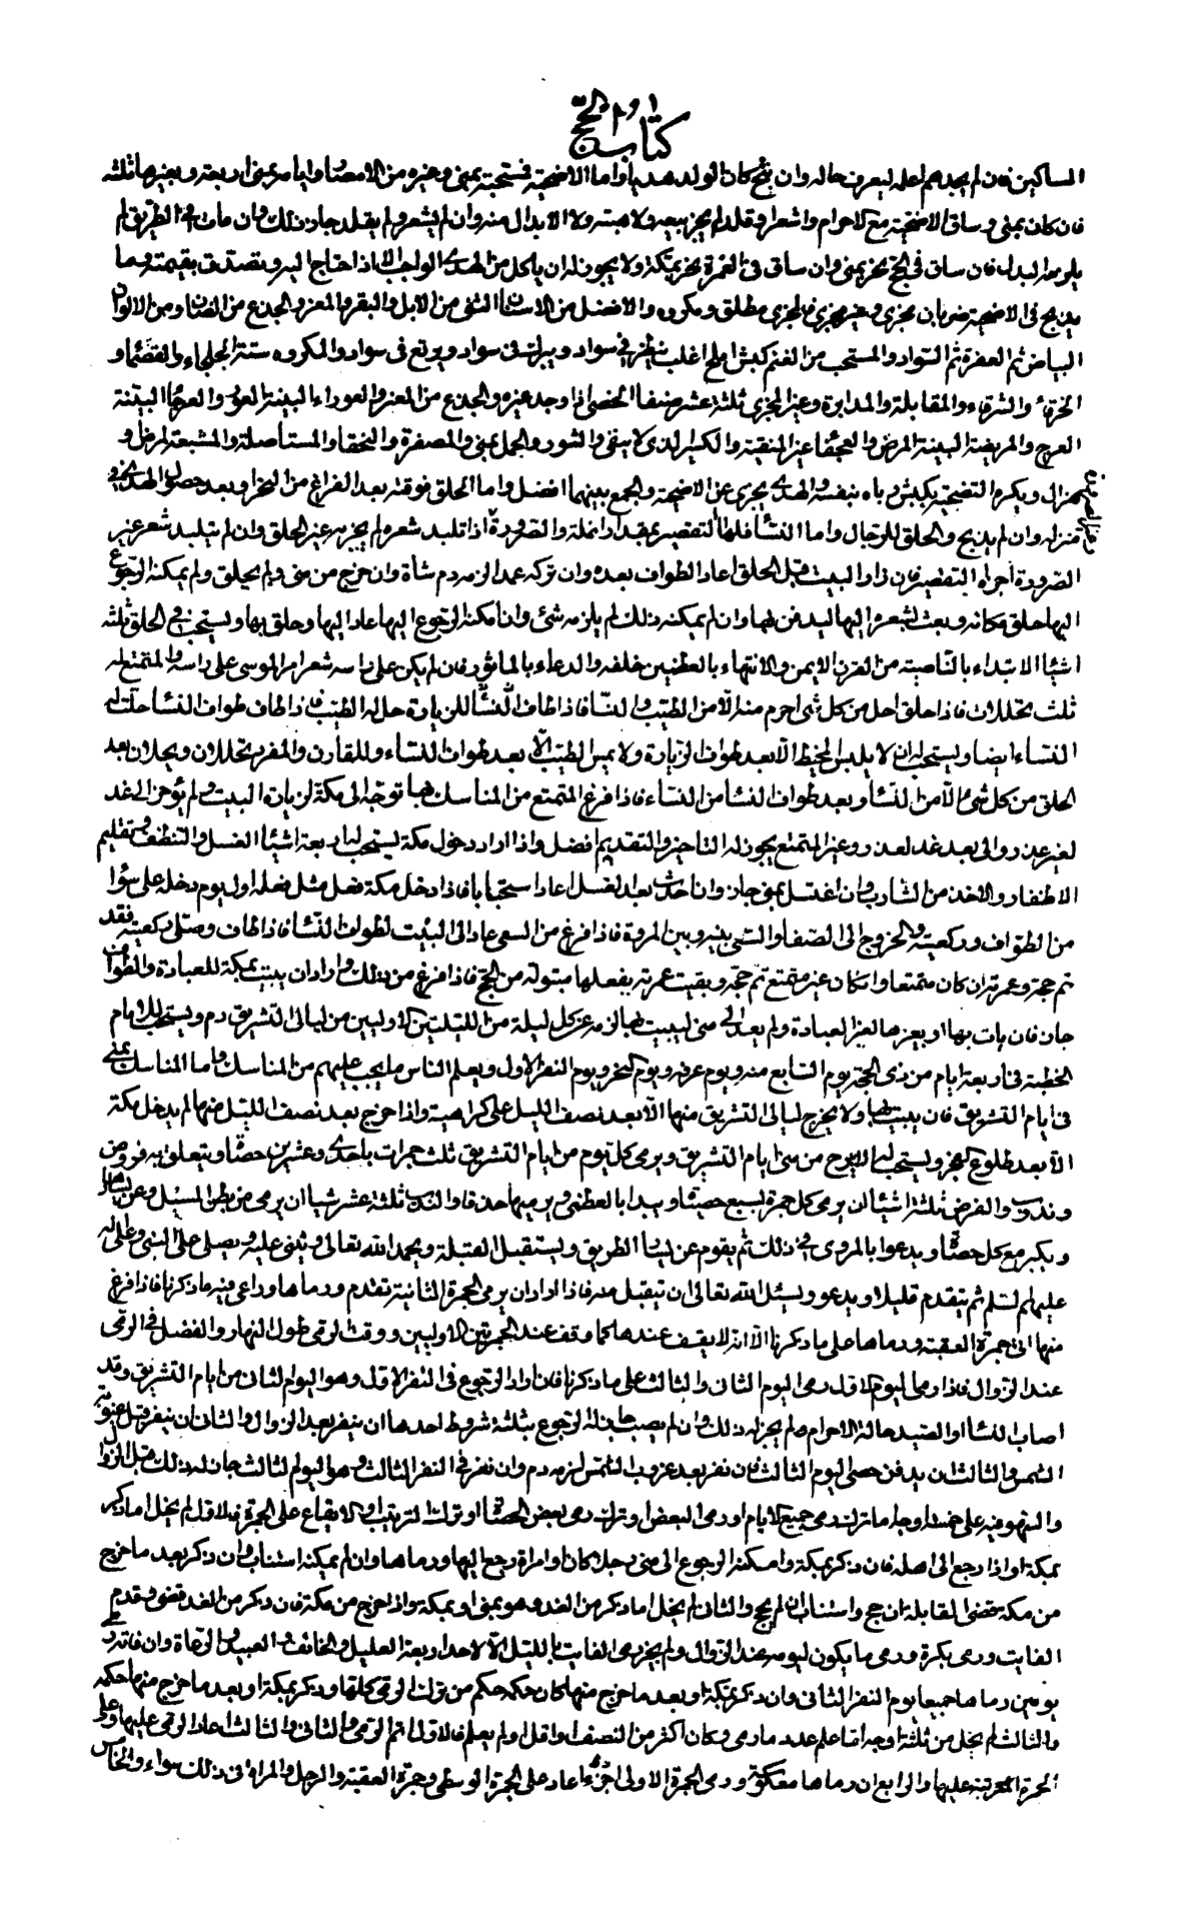 كتاب الحج
المساكين فان لم يجدهم اعلمه ليعرف حاله وان نتج كان الولد هديا واما الاضحية فمستحبة بمنى وغيره من الامصار وايامه بمنى اربعة وبغيرها ثلثة
فان كان بمنى وساق الاضحية مع الاحرام واشعر او قلد لم يجز بيعه ولا هبته ولا الابدال منه وان لم يشعر ولم يقلد جاز ذلك وان مات في الطريق لم
يلزمه البدل فان ساق في الحج نحر بمنى وان ساق في العمرة نحر بمكة ولا يجوز له ان ياكل من الهدى الواجب الا اذا احتاج اليه ويتصدق بقيمته وما
يذبح في الاضحية ضربان مجزى وغير مجزى فالمجزى مطلق ومكروه والافضل من الاسنان الثنى من الابل والبقر والمعز والجذع من الضان ومن الالوان
البياض ثم العفرة ثم السواد والمستحب من الغنم كبش املح اغلب ينظر في سواد ويبرك في سواد ويرتع في سواد والمكروه ستة الجلحاء والقصماء و
الخرقاء والشرقاء والمقابلة والمدابرة وغير المجزى ثلثة عشر صنفا الخصى اذا وجد غيره والجذع من المعز والعوراء البينة العور والعرجاء البينة
العرج والمريضة البينة المرض والعجفاء غير المنقية والكسير الذى لا ينقى والثور والجمل بمنى والمصفرة والبخقاء والمستاصلة والمشيعة لمرض و
هزال ويكره التضحية بكبش رباه بنفسه والهدى يجزى عن الاضحية والجمع بينهما افضل واما الحلق فوقته بعد الفراغ من النحر او بعد حصول الهدى في
منزله وان لم يذبح والحلق للرجال واما النساء فلها التقصير بمقدار انملة والصرورة اذا تلبد شعره لم يجزيه غير الحلق وان لم يتلبد شعر غير
الصرورة اجزاه التقصير فان زار البيت قبل الحلق اعاد الطواف بعده وان تركه عمدا لزمه دم شاة وان خرج من منى ولم يحلق ولم يمكنه الرجوع
اليها حلق مكانه وبعث بشعره اليها ليدفن بها وان لم يمكنه ذلك لم يلزمه شئ وان امكنه الرجوع اليها عاد اليها وحلق بها ويستحب في الحلق ثلثة
اشياء الابتداء بالناصية من القرن الايمن والانتهاء بالعظمين خلفه والدعاء بالماثور فان لم يكن على راسه شعر امر الموسى على راسه والمتمتع له
ثلث تحللات فاذا حلق احل من كل شئ احرم منه الا من الطيب والنساء فاذا طاف للزيارة حل له الطيب فاذا طاف طواف النساء حلت له
النساء ايضا ويستحب له ان لا يلبس المخيط الا بعد طواف الزيارة ولا يمس الطيب الا بعد طواف النساء وللقارن والمفرد تحللان ويحلان بعد
الحلق من كل شئ الا من النساء وبعد طواف النساء من النساء فاذا فرغ المتمتع من المناسك بها توجه الى مكة لزيارة البيت ولم يؤخر الى غد
لغير عذر والى بعد غد لعذر وغير المتمتع يجوز له التاخير والتقديم افضل واذا اراد دخول مكة يستحب له اربعة اشياء الغسل والتنظف وتقليم
الاظفار والاخذ من الشارب وان اغتسل بمنى جاز وان احدث بعد الغسل اعاد استحبابا فاذا دخل مكة فعل مثل فعله اول يوم دخله على سواء
من الطواف وركعتيه والخروج الى الصفا والسعى بينه وبين المروة فاذا فرغ من السعى عاد الى البيت لطواف النساء فاذا طاف وصلى ركعتيه فقد
تم حجه وعمرته ان كان متمتعا وان كان غير متمتع تم حجه وبقيت عمرته يفعلها مبتولة من الحج فاذا فرغ من ذلك واراد ان يبيت بمكة للعبادة والطواف
جاز فان بات بها او بغيرها لغير العبادة ولم يعد الى منى ليبيت بها لزمه عن كل ليلة من الليلتين الاوليين من ليالى التشريق دم ويستحب للامام
الخطبة في اربعة ايام من ذى الحجة يوم السابع منه ويوم عرفة ويوم النحر ويوم النفر الاول ويعلم الناس ما يجب عليهم من المناسك واما المناسك بمنى
في ايام التشريق فان يبيت بها ولا يخرج ليالى التشريق منها الا بعد نصف الليل على كراهية واذا خرج بعد نصف الليل منها لم يدخل مكة
الا بعد طلوع الفجر ويستحب له الا يبرح من منى ايام التشريق ويرمى كل يوم من ايام التشريق ثلث جمرات باحدى وعشرين حصاة ويتعلق به فروض
وندوب والفرض ثلثة اشياء ان يرمى كل جمرة بسبع حصيات ويبدا بالعظمى ويرميها حذفا والندب ثلثة عشر شيئا ان يرمى من بطن المسيل وعن يسارها
ويكبر مع كل حصاة ويدعوا بالمروى في ذلك ثم يقوم عن يسار الطريق ويستقبل القبلة ويحمد الله تعالى ويثنى عليه ويصلى على النبى وعلى اله
عليهم السلم ثم يتقدم قليلا ويدعو ويسئل الله تعالى ان يتقبل منه فاذا اراد ان يرمى الجمرة الثانية تقدم ورماها وراعى فيه ما ذكرنا فاذا فرغ
منها اتى جمرة العقبة ورماها على ما ذكرنا الا انه لا يقف عندها كما وقف عند الجمرتين الاوليين ووقت الرمى طول النهار والفضل في الرمى
عند الزوال فاذا رمى اليوم الاول رمى اليوم الثانى والثالث على ما ذكرنا فان اراد الرجوع في النفر الاول وهو اليوم الثانى من ايام التشريق وقد
اصاب النساء او الصيد حالة الاحرام لم يجز له ذلك وان لم يصب جاز له الرجوع بثلثة شروط احدها ان ينفر بعد الزوال والثانى ان ينفر قبل غيبوبة
الشمس والثالث ان يدفن حصى اليوم الثالث فان نفر بعد غروب الشمس لزمه دم وان نفر في النفر الثالث وهو اليوم الثالث جاز له ذلك قبل الزوال
والسهو فيه على خمسة اوجه اما ترك رمى جميع الايام او رمى البعض او ترك رمى بعض الحصاة او ترك الترتيب او الايقاع على الجمرة فالاول لم يخل اما ذكر
بمكة او اذا رجع الى اهله فان ذكر بمكة وامكنه الرجوع الى منى رجلا كان او امراة رجع اليها ورماها وان لم يمكنه استناب وان ذكر بعد ما خرج
من مكة قضى القابلة ان حج واستناب ان لم يحج والثانى لم يخل اما ذكر من الغد وهو بمنى او بمكة او اذا خرج من مكة فان ذكر من الغد قضى وقدم
الفايت ورمى بكرة ورمى ما يكون ليومه عند الزوال ولم يجز رمى الفايت بالليل الا لاحد اربعة العليل والخائف والعبيد والرعاة وان فاته رمى
يومين رماها جميعا يوم النفر الثانى وان ذكر بمكة او بعد ما خرج منها كان حكمه حكم من ترك الرمى كلها وذكر بمكة او بعد ما خرج منها حكمه
والثالث لم يخل من ثلثة اوجه اما علم عدد ما رمى وكان اكثر من النصف او اقل او لم يعلم فالاول اتم الرمى والثانى والثالث اعاد الرمى عليها وعلى
الجمرة المترتبة عليها والرابع ان رماها معكوسة ورمى الجمرة الاولى اخيرا اعاد على الجمرة الوسطى وجمرة العقبة والرجل والمراة في ذلك سواء والخامس